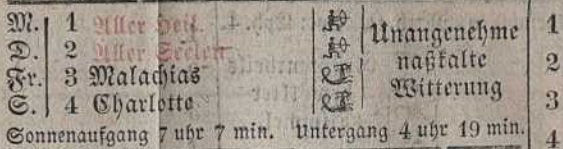 M. 1 Aller Heil. Unangenehme 1
D. 2 Aller Seelen naßkalte 2
Fr. 3 Malachias Witterung 3
S. 4 Charlotte 4
Sonnenaufgang 7 uhr 7 min. Untergang 4 uhr 19 min.